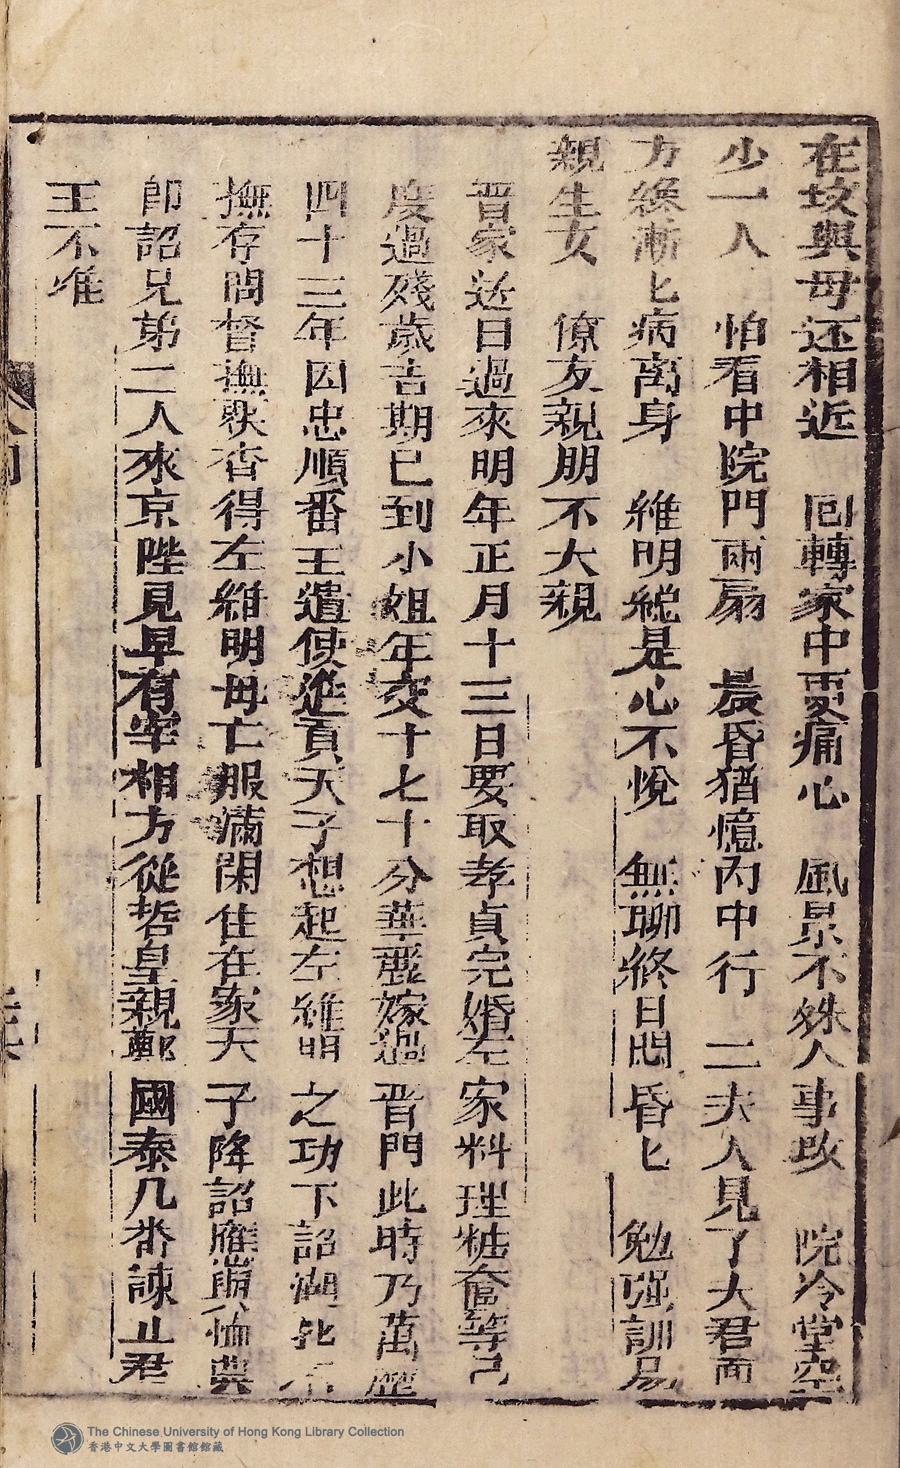 在坟與母还相近　回轉家中更痛心　風景不殊人事改　院冷堂空
少一人　怕看中院門兩扇　晨昏猶憶內中行　二夫人見了大君面
方纔漸匕病離身　維明総是心不悅　無聊終日悶昏匕　勉强訓
親生女　僚友親朋不大親
晋家近日過來明年正月十三日要取孝貞完婚左家料理粧奩等
度過殘歲吉期已到小姐年交十七十分華麗嫁過晋門此時乃萬歷
四十三年因忠順番王遣使進貢天子想起左維明之功下詔湖
撫存問督撫査得左維明母亡服滿閑住在家天子降詔
卽詔兄弟二人來京陛見早有宰相方從哲皇親鄭國泰几畨諫止君
王不准
The Chinese University of Hong Kong Library Collection
香港中文大學圖書館館藏